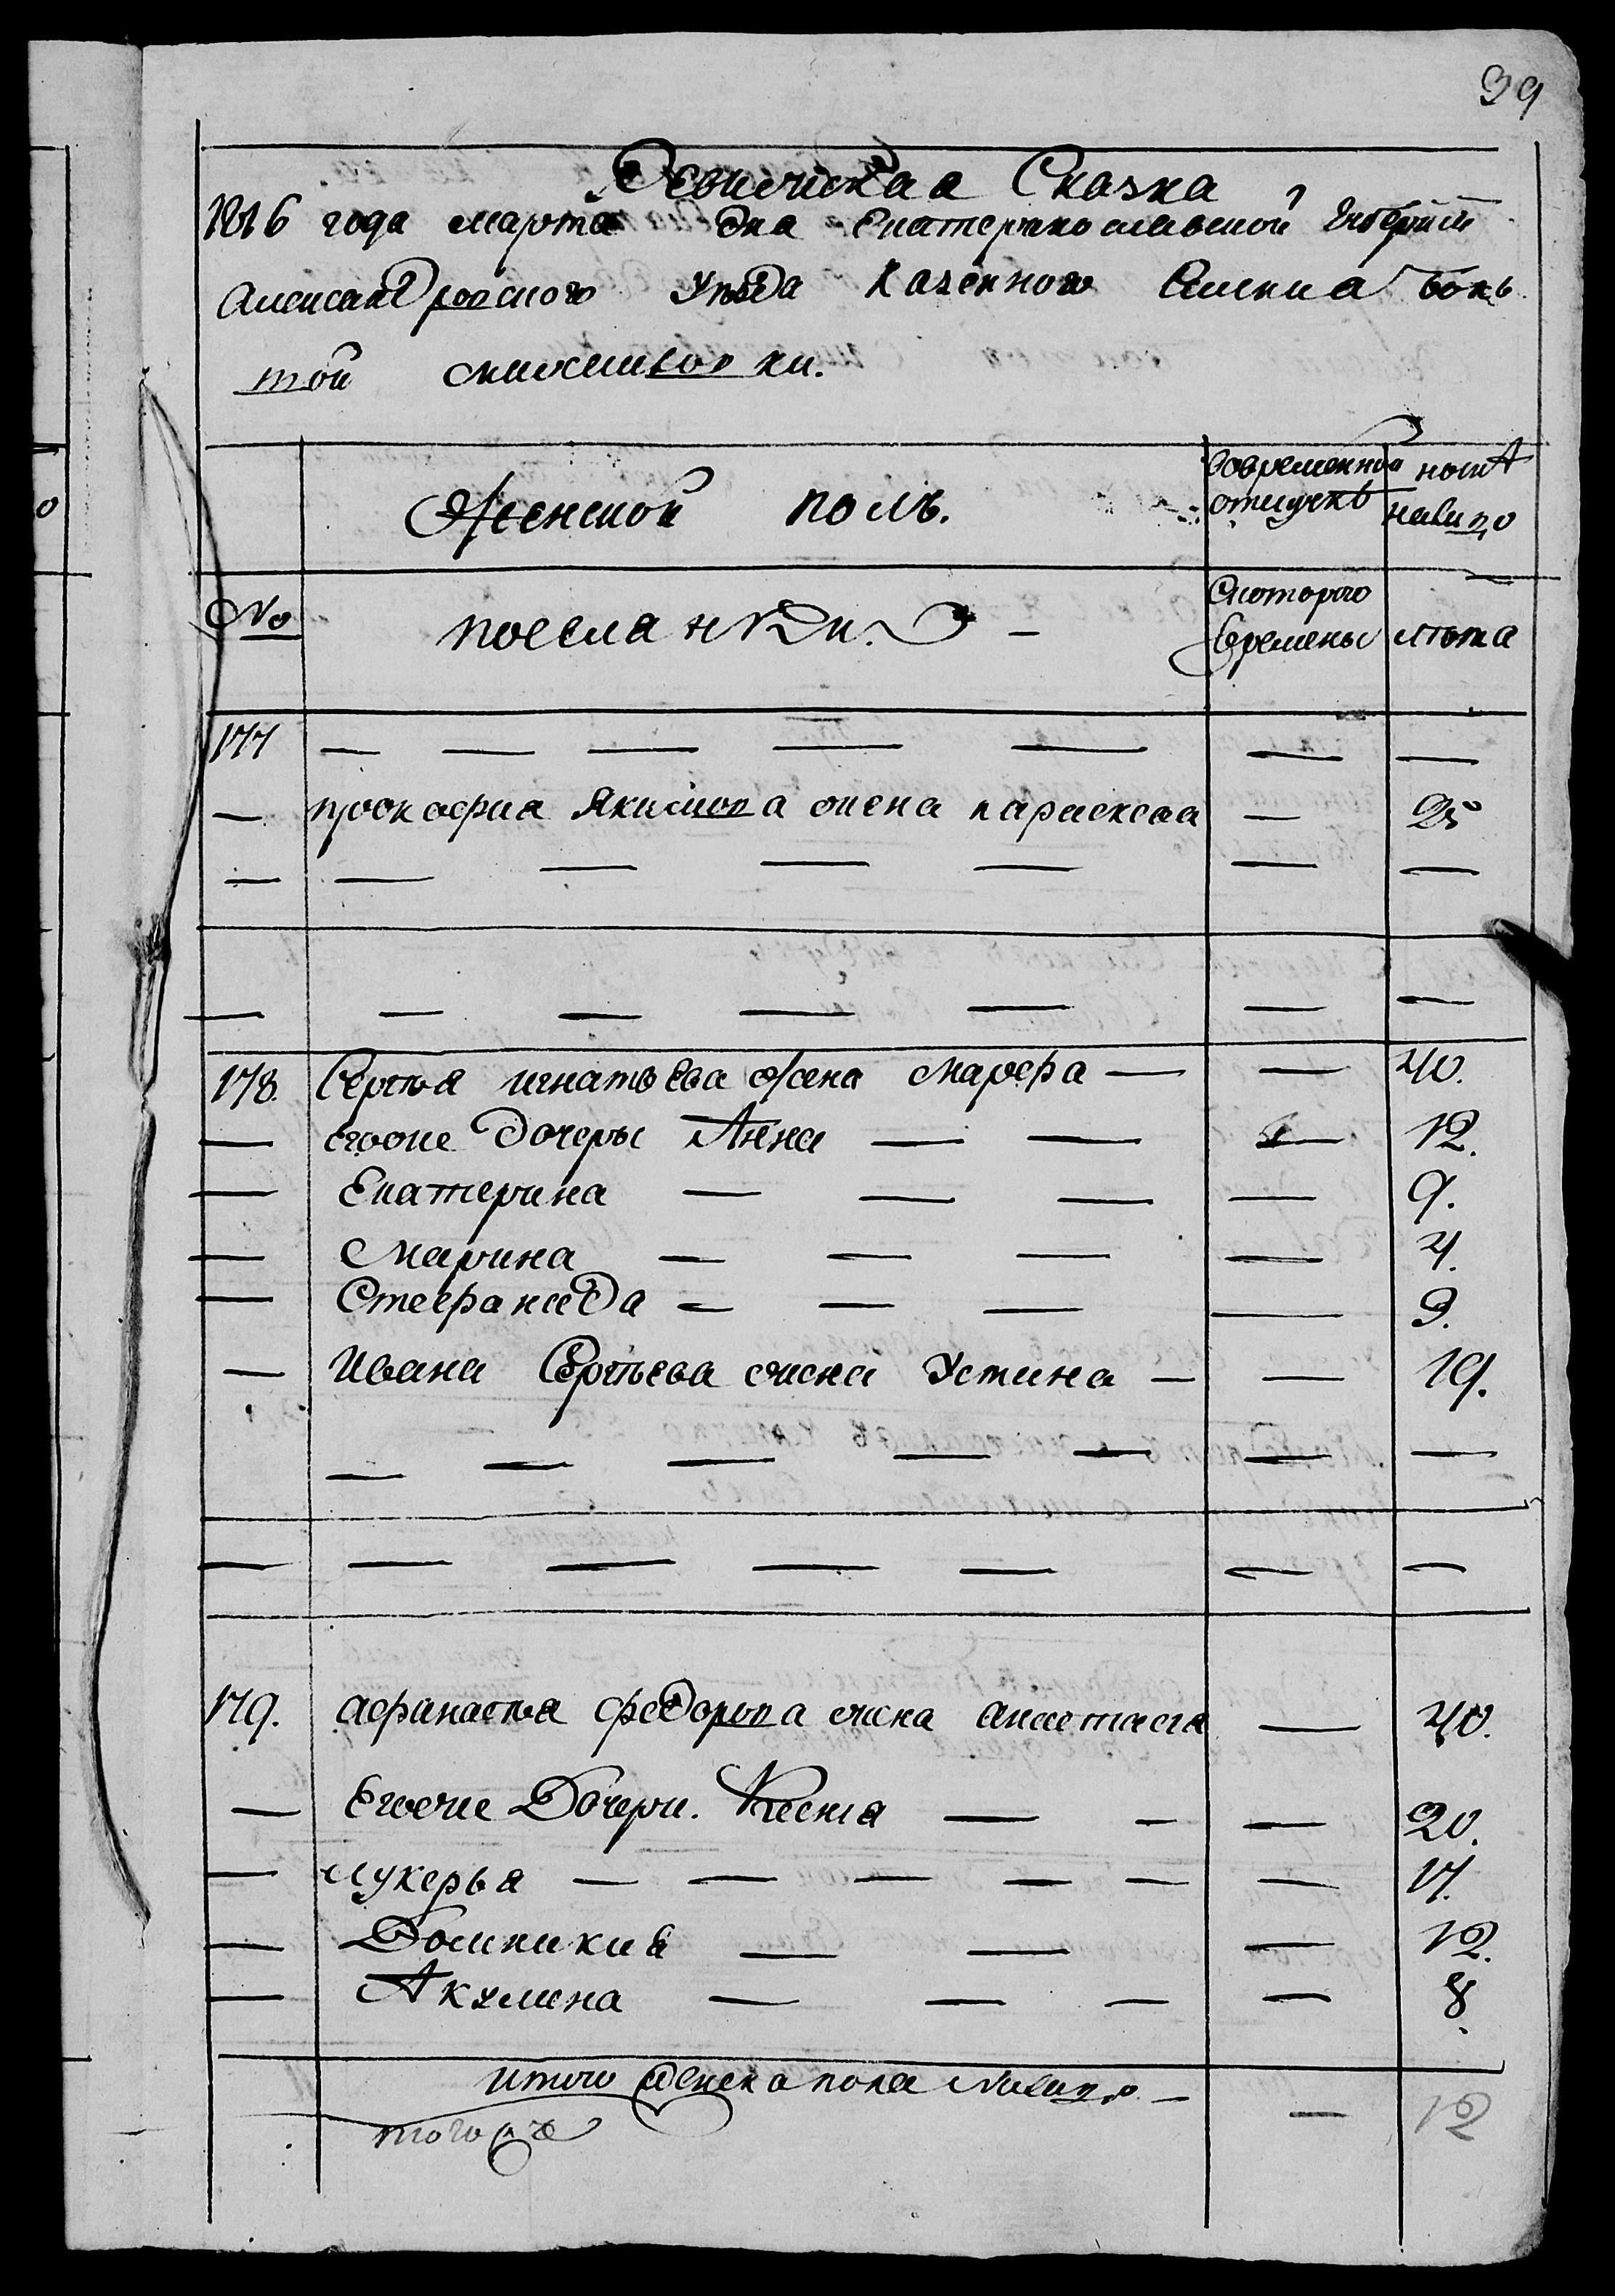 39
Ревижская Сказка
1816 года марта дня Екатеринославской Губернии
Александровского Уезда Казенного Селения Бокь
той
Женской полъ.
Вовременной отлучкѣ
ныне на лицо
№
поселянки.
Скоторого времены
лѣта
177 — — — — — — —
— прокофия Якимова жена параскева — 25
— — — — — — —
— — — — — — —
178. Сергѣя игнатьева жена Марфа — — 40.
— егоже дочеры Анна — — — 12.
— Екатерина — — — — 9.
— Марина — — — — 4.
— Стефанида — — — — 3.
— Ивана Сергѣева жена Устина — — 19.
— — — — — — —
— — — — — — —
179. афанасия федорова жена анастасия — 40.
— Егоже Дочери. Ксения — — — 20.
— лукерья — — — — — — 17.
— Домникия — — — 12.
— Акулина — — — — 8.
итого женска пола налицо — — 12